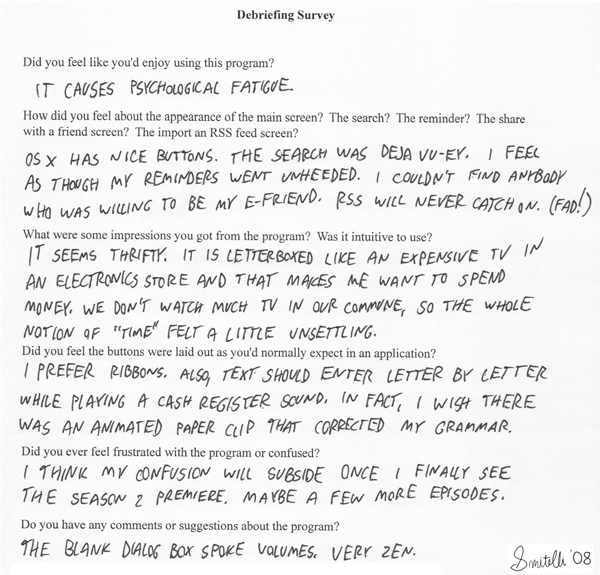 Debriefing Survey
Did you feel like you'd enjoy using this program?
IT CAUSES PSYCHOLOGICAL FATIGUE.
How did you feel about the appearance of the main screen? The search? The reminder? The share
with a friend screen? The import an RSS feed screen?
OS X HAS NICE BUTTONS. THE SEARCH WAS DEJA VU-EY. I FEEL
AS THOUGH MY REMINDERS WENT UNHEEDED. I COULDN'T FIND ANYBODY
WHO WAS WILLING TO BE MY E-FRIEND. RSS WILL NEVER CATCH ON. (FAD!)
What were some impressions you got from the program? Was it intuitive to use?
IT SEEMS THRIFTY. IT IS LETTERBOXED LIKE AN EXPENSIVE TV IN
AN ELECTRONICS STORE AND THAT MAKES ME WANT TO SPEND
MONEY. WE DON'T WATCH MUCH TV IN OUR COMMUNE, SO THE WHOLE
NOTION OF "TIME" FELT A LITTLE UNSETTLING.
Did you feel the buttons were laid out as you'd normally expect in an application?
I PREFER RIBBONS. ALSO, TEXT SHOULD ENTER LETTER BY LETTER
WHILE PLAYING A CASH REGISTER SOUND. IN FACT, I WISH THERE
WAS AN ANIMATED PAPER CLIP THAT CORRECTED MY GRAMMAR.
Did you ever feel frustrated with the program or confused?
I THINK MY CONFUSION WILL SUBSIDE ONCE I FINALLY SEE
THE SEASON 2 PREMIERE. MAYBE A FEW MORE EPISODES.
Do you have any comments or suggestions about the program?
THE BLANK DIALOG BOX SPOKE VOLUMES. VERY ZEN.
Smitelli '08